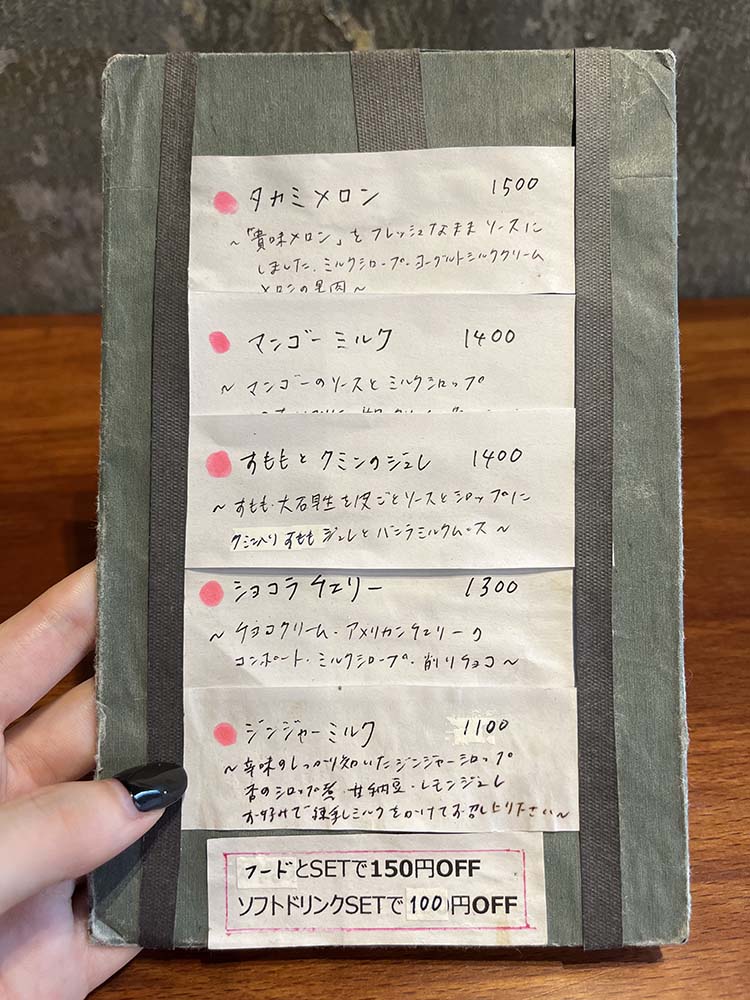 タカミメロン 1500
~「貴味メロン」をフレッシュなまま ソースに
しました. ミルクシロープ・ヨーグルトミルククリーム
メロンの果肉~
マンゴー ミルク 1400
~ マンゴーのソースと ミルクシロップ
すももと クミンのジュレ 1400
~ すもも・大石早生を皮ごとソースとシロップに
クミン入り すもも ジュレと バニラミルクムース ~
ショコラ チェリー 1300
~ チョコクリーム・アメリカンチェリーの
コンポート・ミルクシロープ・削りチョコ ~
ジンジャーミルク 1100
~ 辛味のしっかり効いたジンジャーシロップ
杏のシロップ煮・甘納豆・レモンジュレ
お好みで練乳ミルクをかけてお召し上り下さい~
フードとSETで150円OFF
ソフトドリンクSETで100円OFF